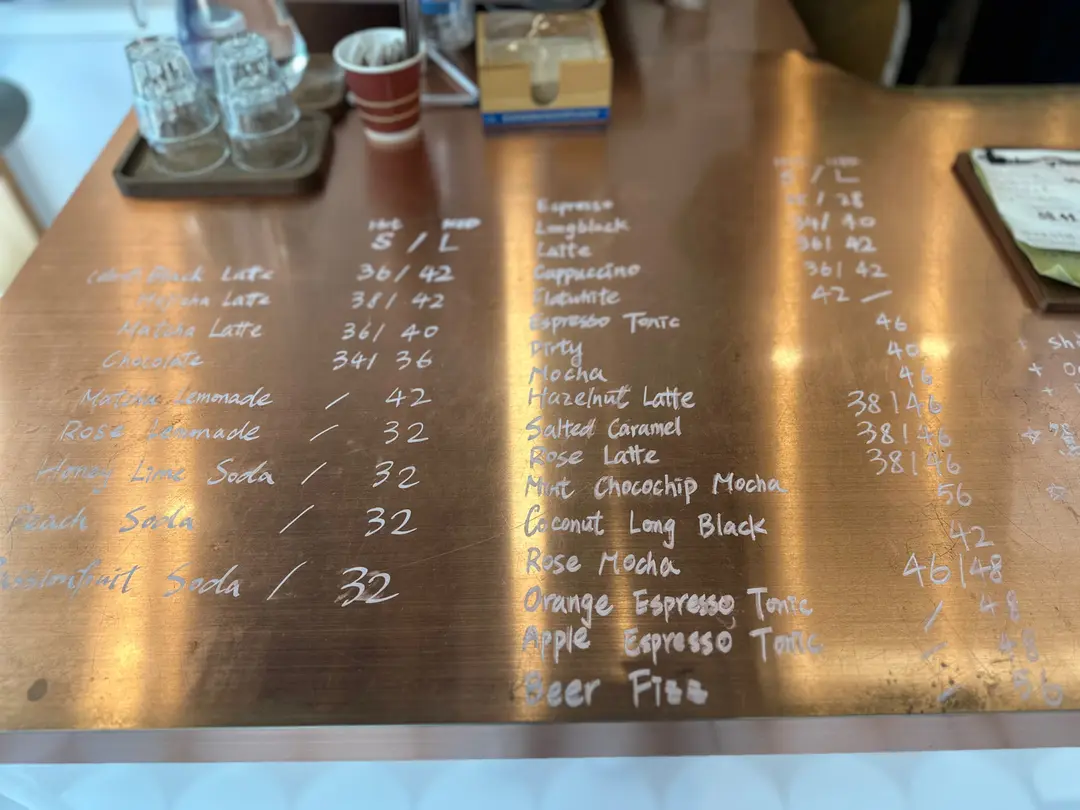 Hot
S / L
Latte 36 / 42
Matcha Latte 38 / 42
Matcha Latte 36 / 40
Chocolate 34 / 36
Matcha Lemonade / 42
Rose Lemonade / 32
Honey Lime Soda / 32
Peach Soda / 32
Passionfruit Soda / 32
S / L
Espresso / 28
Longblack 34 / 40
Latte 36 / 42
Cappuccino 36 / 42
Flatwhite 42 —
Espresso Tonic 46
Dirty 40
Mocha 46
Hazelnut Latte 38 | 46
Salted Caramel 38 | 46
Rose Latte 38 | 46
Mint Chocochip Mocha 56
Coconut Long Black 42
Rose Mocha 46 | 48
Orange Espresso Tonic / 48
Apple Espresso Tonic / 48
Beer Fizz / 56